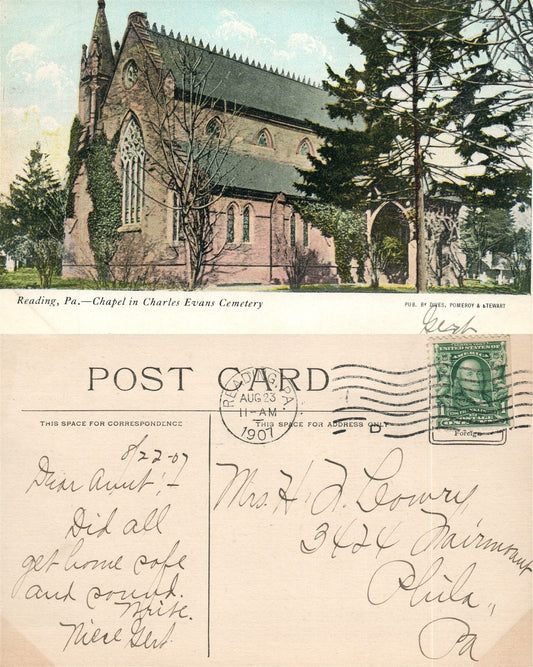 Reading, Pa.—Chapel in Charles Evans Cemetery
PUB. BY DIVES, POMEROY & STEWART
Gert
POST CARD
READING, PA.
AUG 23
11-AM
1907
D
UNITED STATES OF
ONE
Foreign
THIS SPACE FOR CORRESPONDENCE
THIS SPACE FOR ADDRESS ONLY
8/22-07
Dear Aunt;-
Did all
get home safe
and sound.
Write.
Niece Gert.
Mrs. H. F. Lowry
3424 Fairmount
Phila.,
Pa